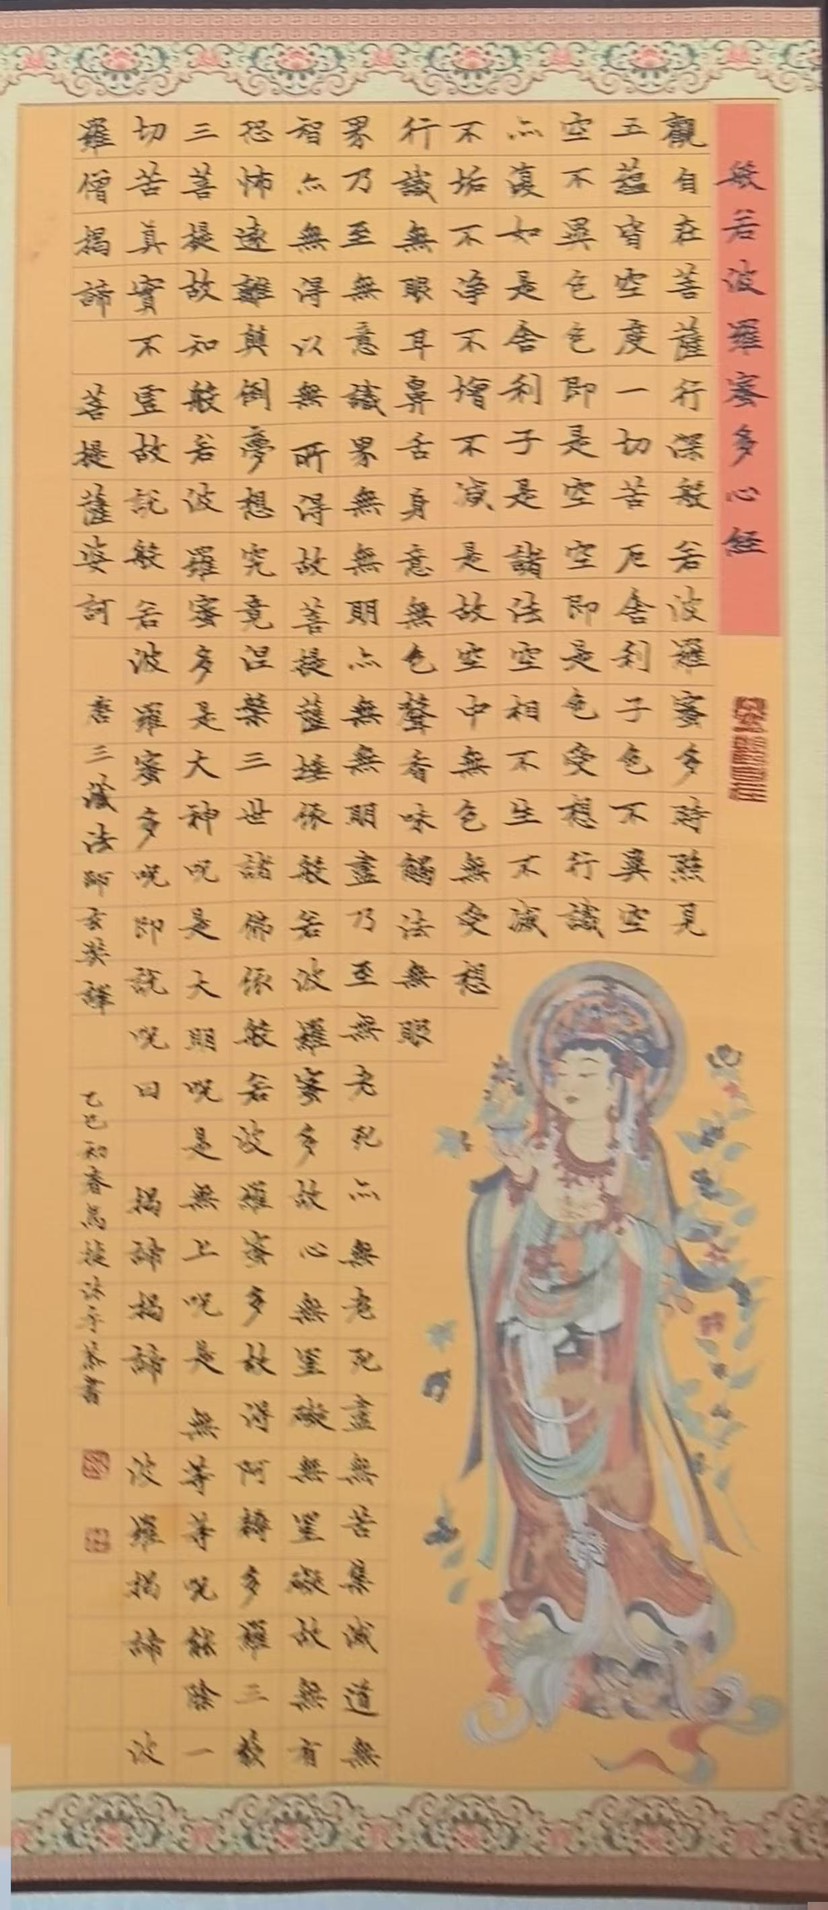 般若波羅蜜多心經
觀自在菩薩行深般若波羅蜜多時照見
五蘊皆空度一切苦厄舍利子色不異空
空不異色色即是空空即是色受想行識
亦復如是舍利子是諸法空相不生不滅
不垢不淨不增不減是故空中無色無受想
行識無眼耳鼻舌身意無色聲香味觸法無眼
界乃至無意識界無無明亦無無明盡乃至無老死亦無老死盡無苦集滅道無
智亦無得以無所得故菩提薩埵依般若波羅蜜多故心無罣礙無罣礙故無有
恐怖遠離顛倒夢想究竟涅槃三世諸佛依般若波羅蜜多故得阿耨多羅三藐
三菩提故知般若波羅蜜多是大神呪是大明呪是無上呪是無等等呪能除一
切苦真實不虛故說般若波羅蜜多呪即說呪曰 揭諦揭諦 波羅揭諦 波
羅僧揭諦 菩提薩婆訶 唐三藏法師玄奘譯 乙巳初春沐手恭書